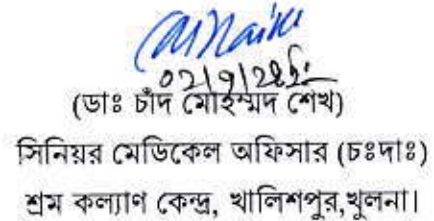 (ডাঃ চাঁদ মোহম্মদ শেখ)
সিনিয়র মেডিকেল অফিসার (চঃদাঃ)
শ্রম কল্যাণ কেন্দ্র, খালিশপুর,খুলনা।